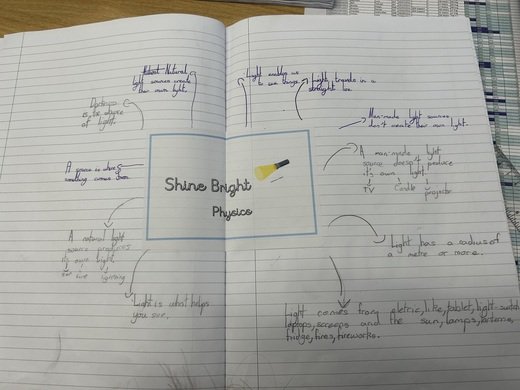 Natural
light sources create
their own light.
Light enables us
to see things.
Light travels in a
straight line.
Darkness
is the absence
of light.
Man-made light sources
don't create their own light.
A source is where
something comes from
A man-made light
source doesn't produce
its own light
TV
Candle
projector
Shine Bright
Physics
A natural light
source produces
its own light
sun fire lightning
Light has a radius of
a metre or more.
Light is what helps
you see.
Light comes from eletric, like, tablet, light switch
laptops, screens and the sun, lamps,
fridge, fires, fireworks.